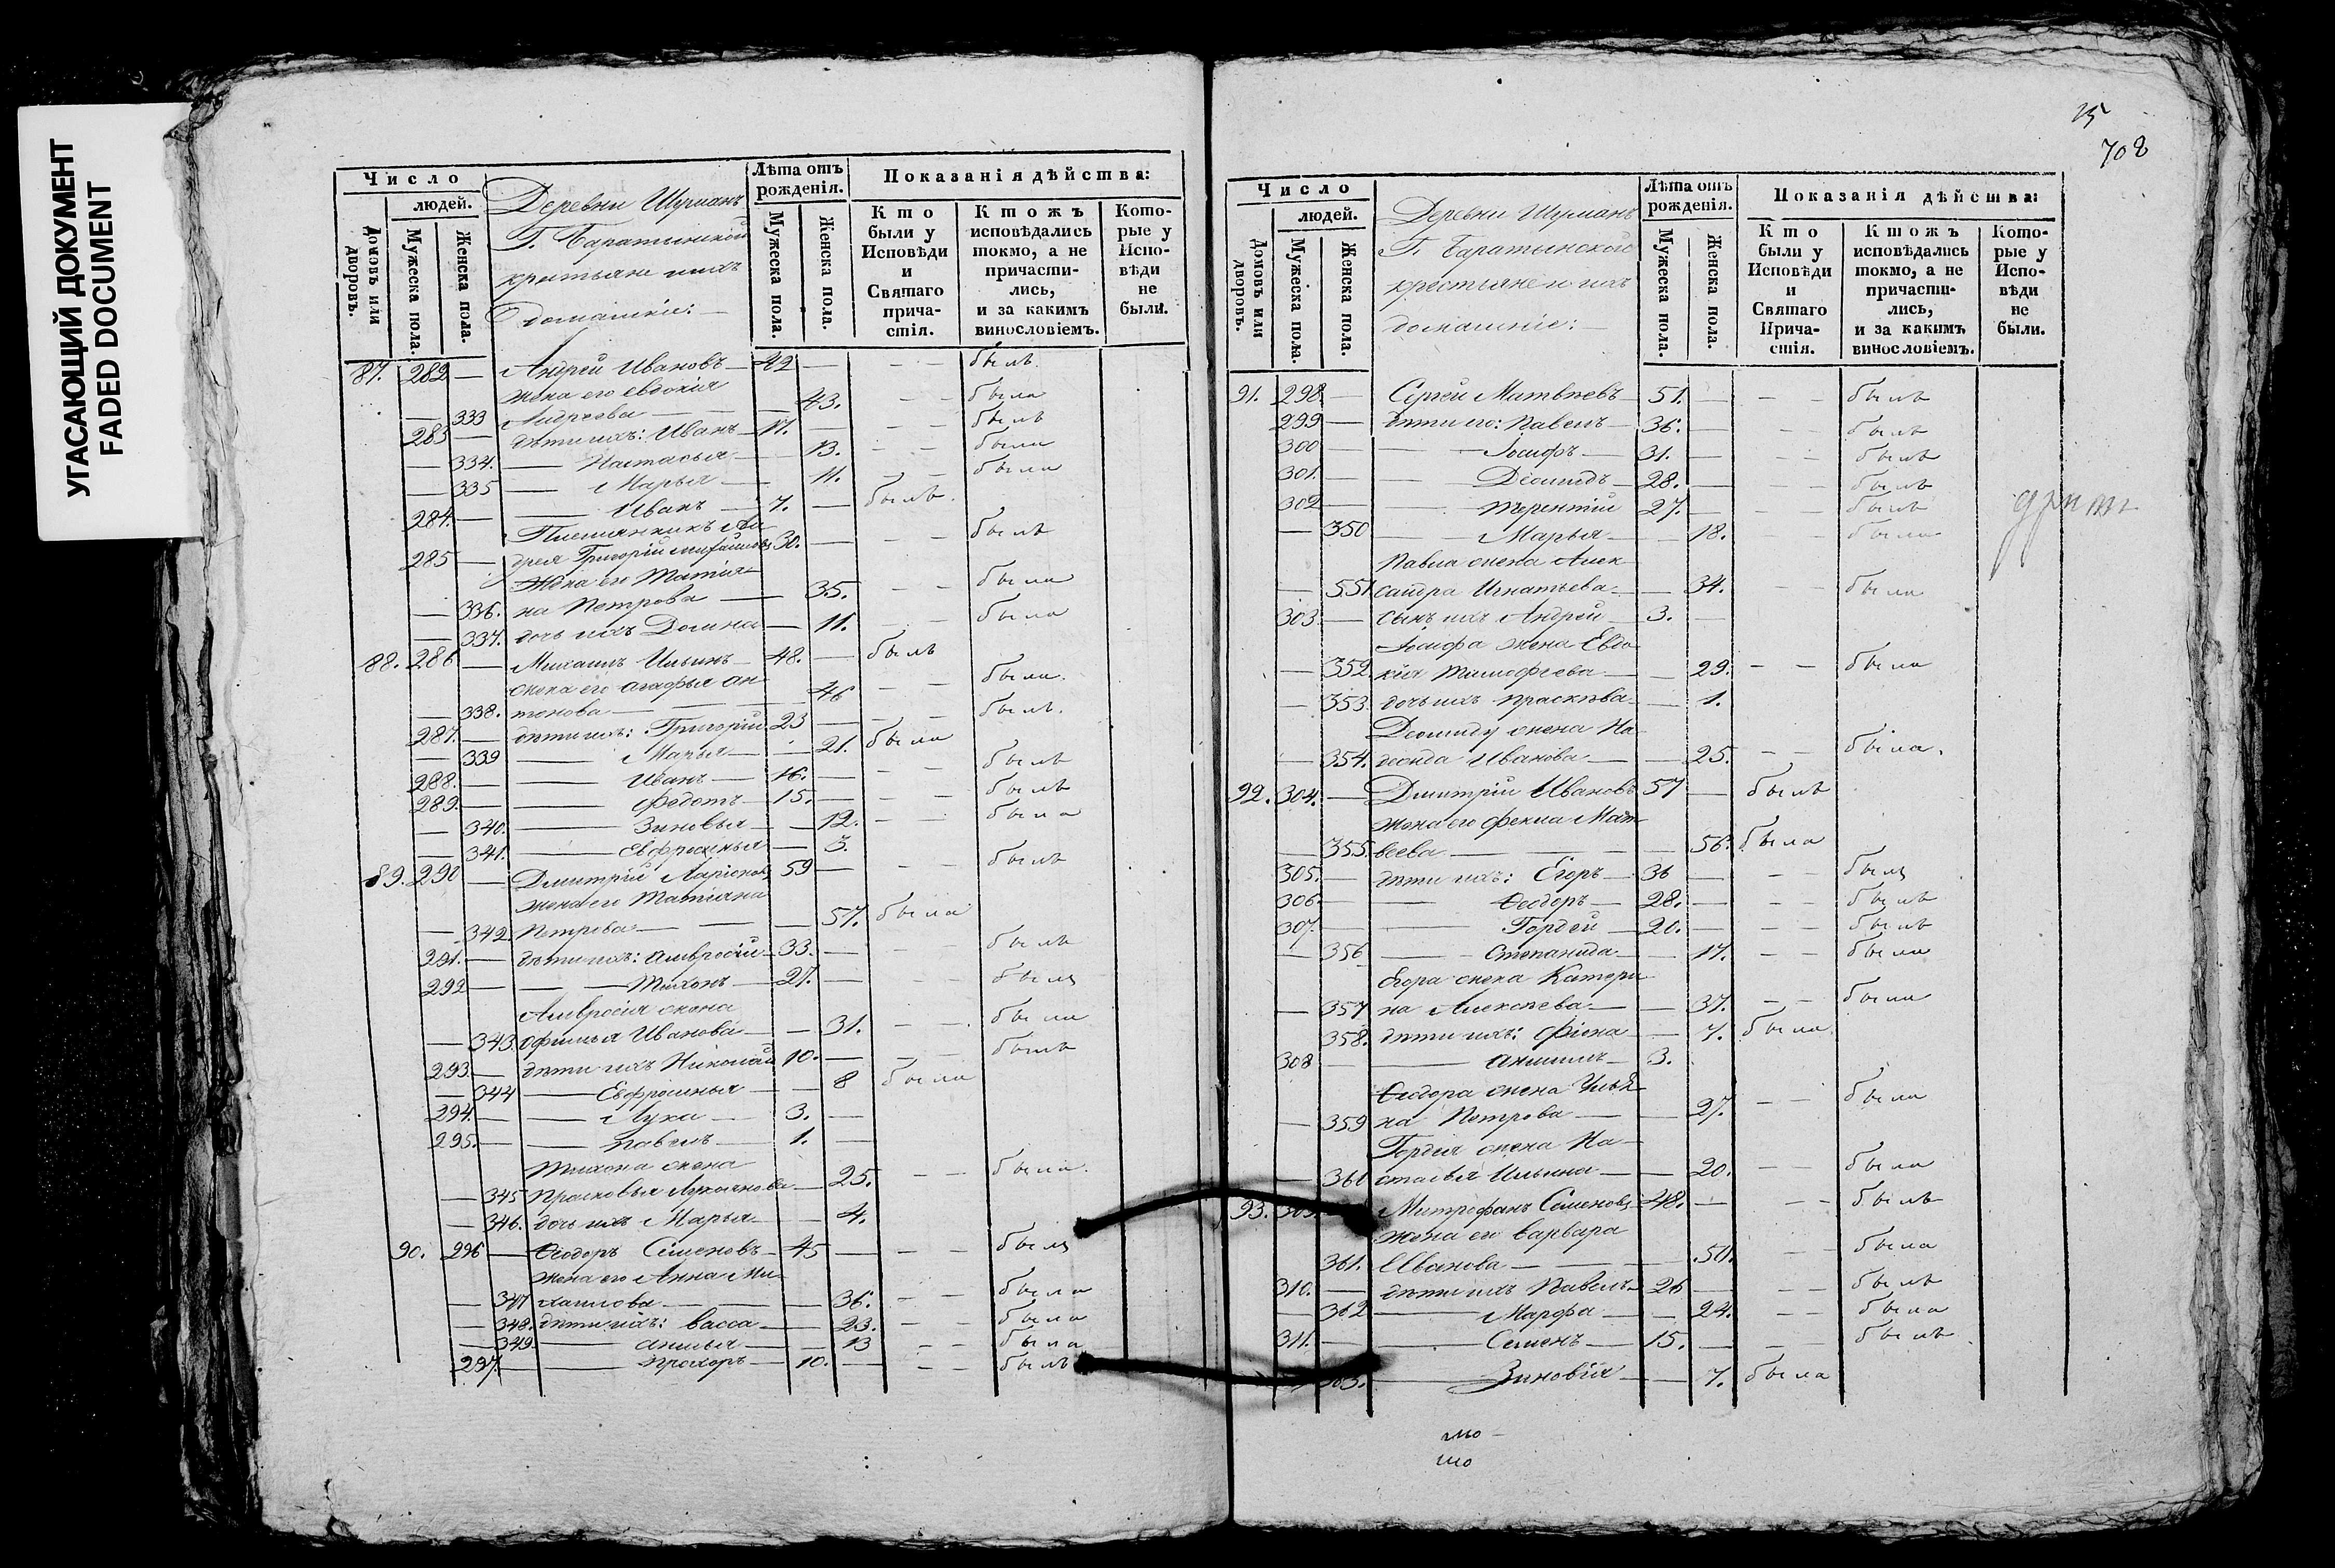 УГАСАЮЩИЙ ДОКУМЕНТ
FADED DOCUMENT
Число
людей.
Домовъ или дворовъ.
Мужеска пола.
Женска пола.
Деревни Шурманъ
Г. Баратынской
крестьяне и ихъ
домашніе:
Лѣта отъ рожденія.
Мужеска пола.
Женска пола.
Показанія дѣйства:
Кто были у Исповѣди и Святаго причастія.
Ктожъ исповѣдались токмо, а не причастились, и за какимъ винословіемъ.
Которые у Исповѣди не были.
87. 282 — Андрей Ивановъ — 42 — былъ.
жена его Евдокія
— 333 Андреева — 43. была
283 — дѣти ихъ: Иванъ — 17. — былъ
— 334. — Настасья — 13. была
— 335 — Марья — 11. была
284. — Иванъ — 7. — былъ.
Племянникъ Ан
285 — дрея Григорій Михайловъ 30. — былъ
Жена его Татіа
— 336. на Петрова — 35. была
— 337. дочь ихъ Домна — 11. была
88. 286 — Михаилъ Ильинъ — 48. — былъ
жена его Агафья Ан
— 338. тонова — 46 была.
287. — дѣти ихъ: Григорій 23 — былъ.
— 339 — Марья — 21. была
288. — Иванъ — 16. — былъ
289. — Федотъ — 15. — былъ
— 340. — Зиновья — 12. была
— 341. — Евфросинья — 3.
89. 290 — Дмитрій Ларіоновъ 59 — былъ
жена его Татіана
— 342. Петрова — 57. была
291. — дѣти ихъ: Амвросій — 33. — былъ
292 — Тихонъ — 27. — былъ
Амвросія жена
— 343. Офимья Иванова — 31. была
293 — дѣти ихъ Николай 10. — былъ
— 344 — Евфросинья — 8 была
294. — Лука — 3. —
295. — Павелъ — 1. —
Тихона жена
— 345 Прасковья Лукьянова — 25. была.
— 346. дочь ихъ Марья — 4.
90. 296 — Ѳеодоръ Семеновъ — 45 — былъ
жена его Анна Ми
— 347 хаилова — 36. была
— 348. дѣти ихъ: Васса — 23. была
— 349. — Анисья — 13 была
297. — Прохоръ — 10. — былъ
708
Число
людей.
Домовъ или дворовъ.
Мужеска пола.
Женска пола.
Деревни Шурманъ
Г. Баратынской
крестьяне и ихъ
домашніе:
Лѣта отъ рожденія.
Мужеска пола.
Женска пола.
Показанія дѣйства:
Кто были у Исповѣди и Святаго Причастія.
Ктожъ исповѣдались токмо, а не причастились, и за какимъ винословіемъ.
Которые у Исповѣди не были.
91. 298. — Сергѣй Матвѣевъ — 51. — былъ
299 — дѣти его: Павелъ — 36. — былъ
300 — Іосифъ — 31. — былъ
301. — Діомидъ — 28. — былъ
302 — Терентій 27. — былъ
— 350 — Марья — 18. была
Павла жена Алек
— 551 сандра Игнатьева — 34. была
303 — сынъ ихъ Андрей — 3. —
Іосифа жена Евдо
— 352. кія Тимофеева — 29. была
— 353. дочь ихъ Прасковья — 1.
Діомида жена На
— 354. Иванова — 25. была.
92. 304. — Дмитрій Ивановъ 57 — былъ
жена его Фекла Мат
— 355. веева — 56. была
305. — дѣти ихъ: Егоръ — 36 — былъ
306. — Ѳеодоръ — 28. — былъ
307. — Гордей — 20. — былъ
— 356 — Степанида — 17. была
Егора жена Катери
— 357 на Алексѣева — 37. была
358. дѣти ихъ: Фіона — 7. была.
308 — Анисимъ — 3.
Ѳеодора жена Улья
— 359 на Петрова — 27. была
Гордея жена На
— 360 стасья Ильина — 20. была
93. 309 — Митрофанъ Семеновъ — 48. — былъ
жена его Варвара
361. Иванова — 50. была
310. — дѣти ихъ Павелъ — 26 — былъ
— 362 — Марфа — 24. была
311. — Семенъ — 15. — былъ
363. — Зиновія — 7. была